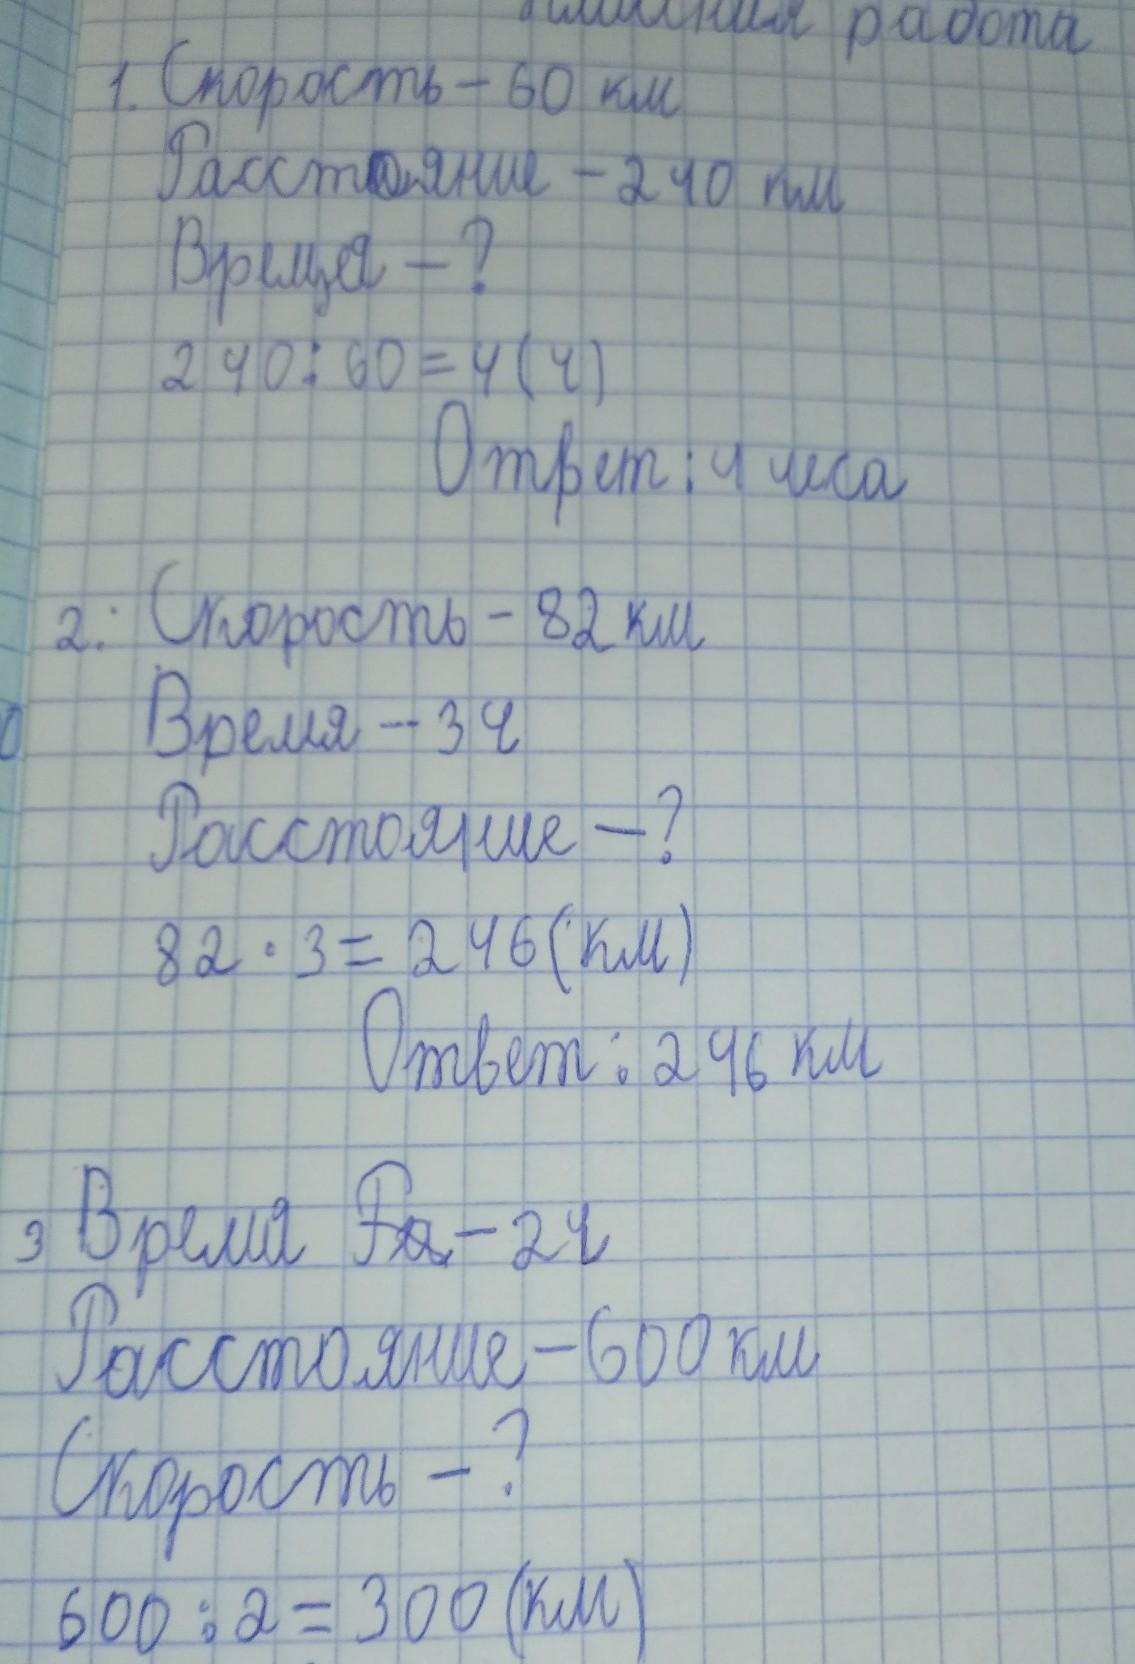 работа
1. Скорость - 60 км
Расстояние - 240 км
Время - ?
240 : 60 = 4 (ч)
Ответ : 4 часа
2. Скорость - 82 км
Время - 3 ч
Расстояние - ?
82 · 3 = 246 (км)
Ответ : 246 км
3 Время - 2 ч
Расстояние - 600 км
Скорость - ?
600 : 2 = 300 (км)